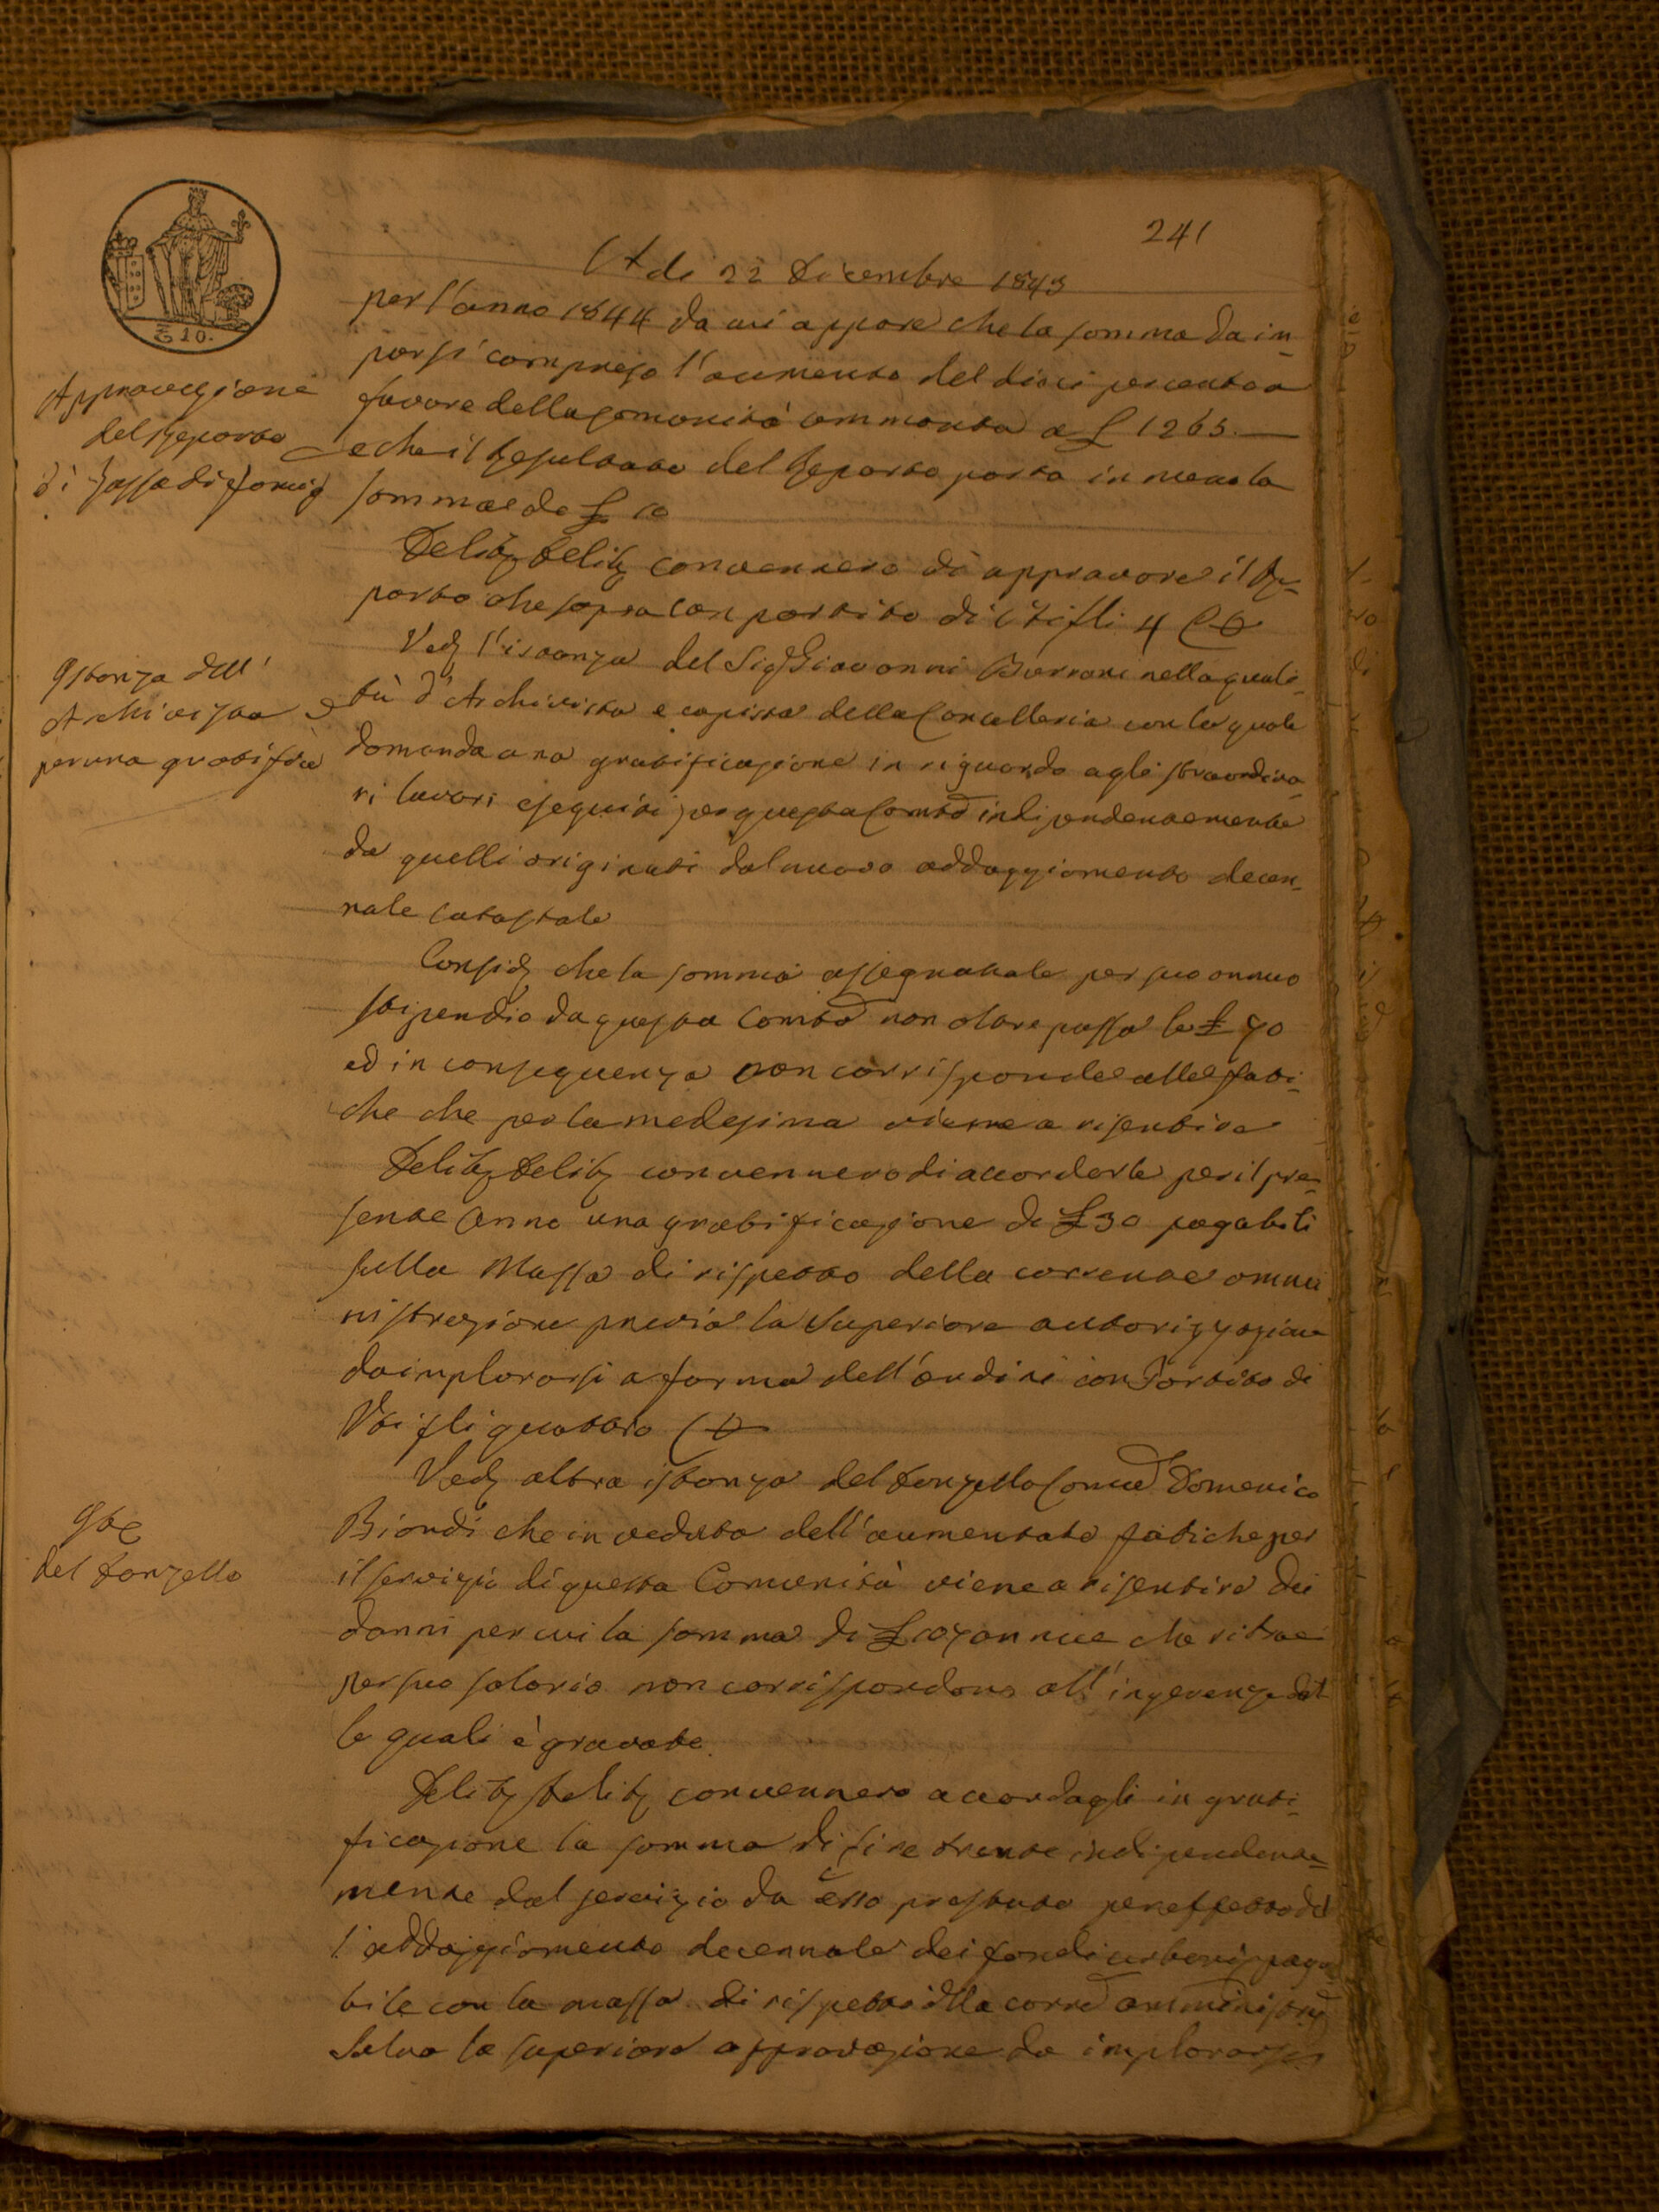 241
A di 22 Dicembre 1843
per l'anno 1844 da cui appare che la somma da im=
porsi compreso l'aumento del dieci per cento a
favore della Comunità ammonta a £ 1265.—
e che il Resultato del Reparto porta in meno la
somma di £ 10
Approvazione
del Reparto
di Tassa di Famig
Delib Delib convennero di approvare il Re=
parto che sopra con partito di Voti fli 4 C
Istanza dell'
Archivista
per una gratifice
Ved l'istanza del Sig Giovanni nella quali=
tà d'Archivista e copista della Cancelleria con la quale
domanda una gratificazione in riguardo agli straordina=
ri lavori eseguiti per questa Comtà indipendentemente
da quelli originati dal nuovo addaggiamento decen=
nale catastale
Consid che la somma assegnatale per suo annuo
stipendio da questa Comtà non oltrepassa le £ 70
ed in conseguenza non corrisponde alle fati=
che che per la medesima viene a risentire
Delib Delib convennero di accordarle per il pre=
sente anno una gratificazione di £ 30 pagabili
sulla Massa di rispetto della corrente ammi
nistrazione previa la Superiore autorizzazione
da implorarsi a forma dell'ordini con Partito di
Voti fli quattro C
Ist
del Donzello
Ved altra istanza del Donzello Comue Domenico
Biondi che in veduta dell'aumentate fatiche per
il servizio di questa Comunità viene a risentire dei
danni per cui la somma di £ 107 annue che ritrae
per suo salario non corrispondono all'ingerenze del
le quali è gravato.
Delib Delib convennero accordagli in grati=
ficazione la somma di lire trenta indipendente=
mente dal servizio da esso prestato per effetto del
l'addaggiamento decennale dei fondi urbani paga=
bile con la massa di rispetto della corre amministre
Salva la superiore approvazione da implorarsi